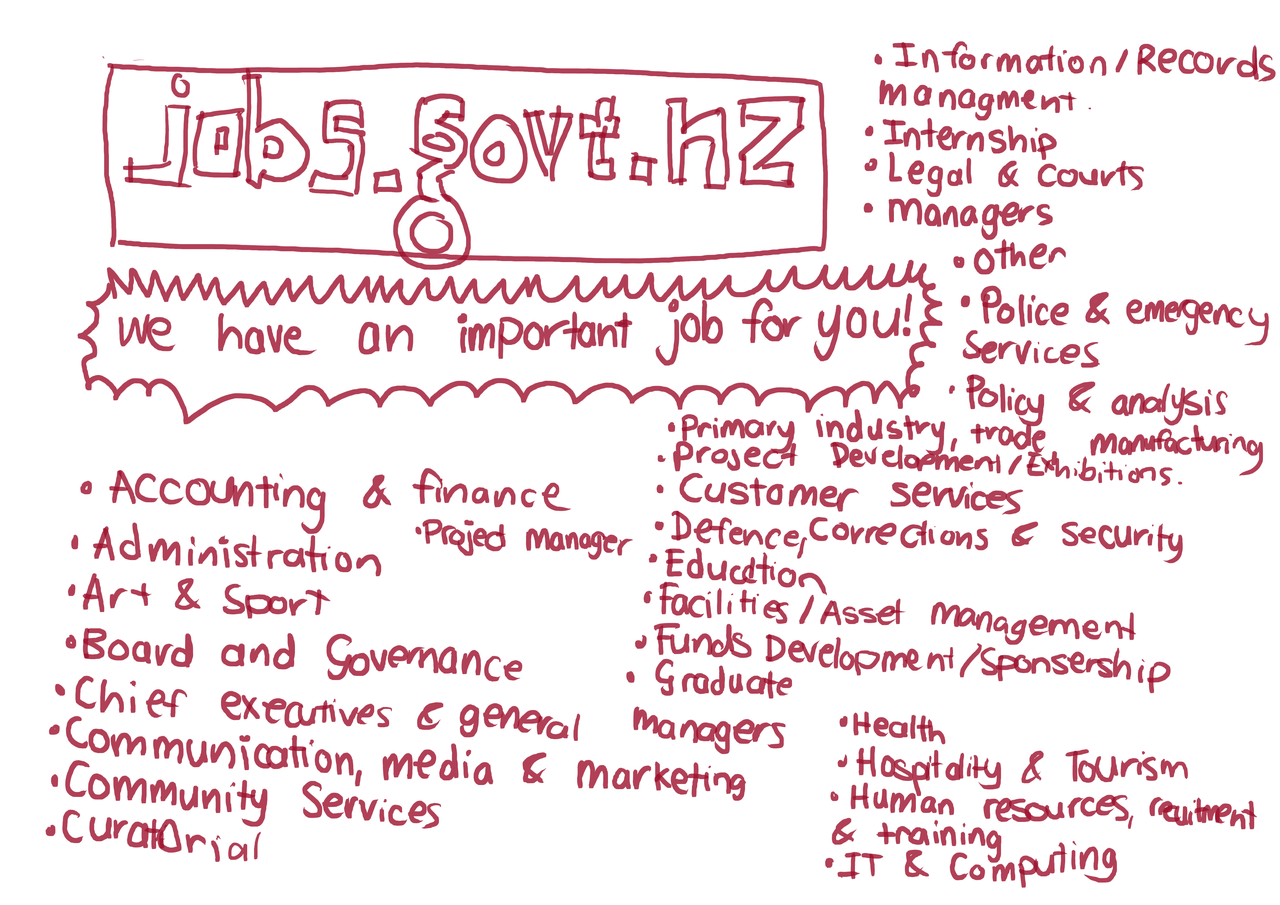 jobs.govt.nz
we have an important job for you!
• Accounting & finance
• Project manager
• Administration
• Art & Sport
• Board and Governance
• Chief executives & general managers
• Communication, media & marketing
• Community Services
• Curatorial
• Primary industry, trade manufacturing
• Project Development/Exhibitions.
• Customer services
• Defence, Corrections & Security
• Education
• Facilities/Asset management
• Funds Development/Sponsership
• Graduate
• Health
• Hospitality & Tourism
• Human resources, recuitment
& training
• IT & Computing
• Information/Records
managment.
• Internship
• Legal & Courts
• managers
• other
• Police & emergency
Services
• Policy & analysis